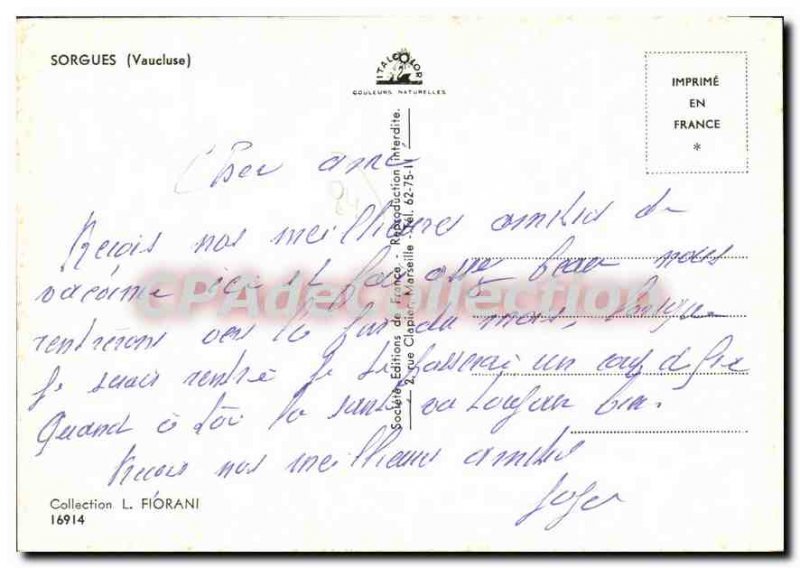 SORGUES (Vaucluse)
ITALCOLOR
COULEURS NATURELLES
IMPRIMÉ
EN
FRANCE
*
Société Editions de France - Reproduction interdite.
2, rue Clapier, Marseille - Tél. 62-75-11
Cher ami
Recois nos meilleures amitiés de
vacance ici il fait beau nous
rentrerons vers la fin du mois,
je serais rentré je te passerai un coup de fil
Quand à toi la santé va toujour bien.
Recois nos meilleurs amitiés
CPAdeCollection
Collection L. FIORANI
16914